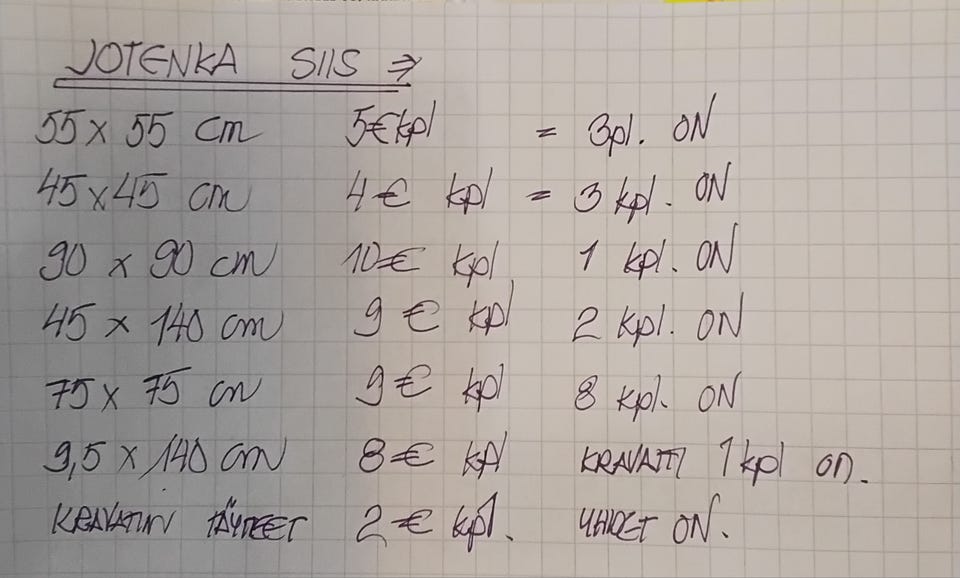 JOTENKA SIIS ⇒
55 x 55 cm 5€ kpl = 3pl. ON
45 x 45 cm 4€ kpl = 3 kpl. ON
90 x 90 cm 10€ kpl 1 kpl. ON
45 x 140 cm 9 € kpl 2 kpl. ON
75 x 75 cm 9€ kpl 8 kpl. ON
9,5 x 140 cm 8€ kpl KRAVATTI 1 kpl on.
KRAVATIN TÄYTEET 2€ kpl. YHDET ON.